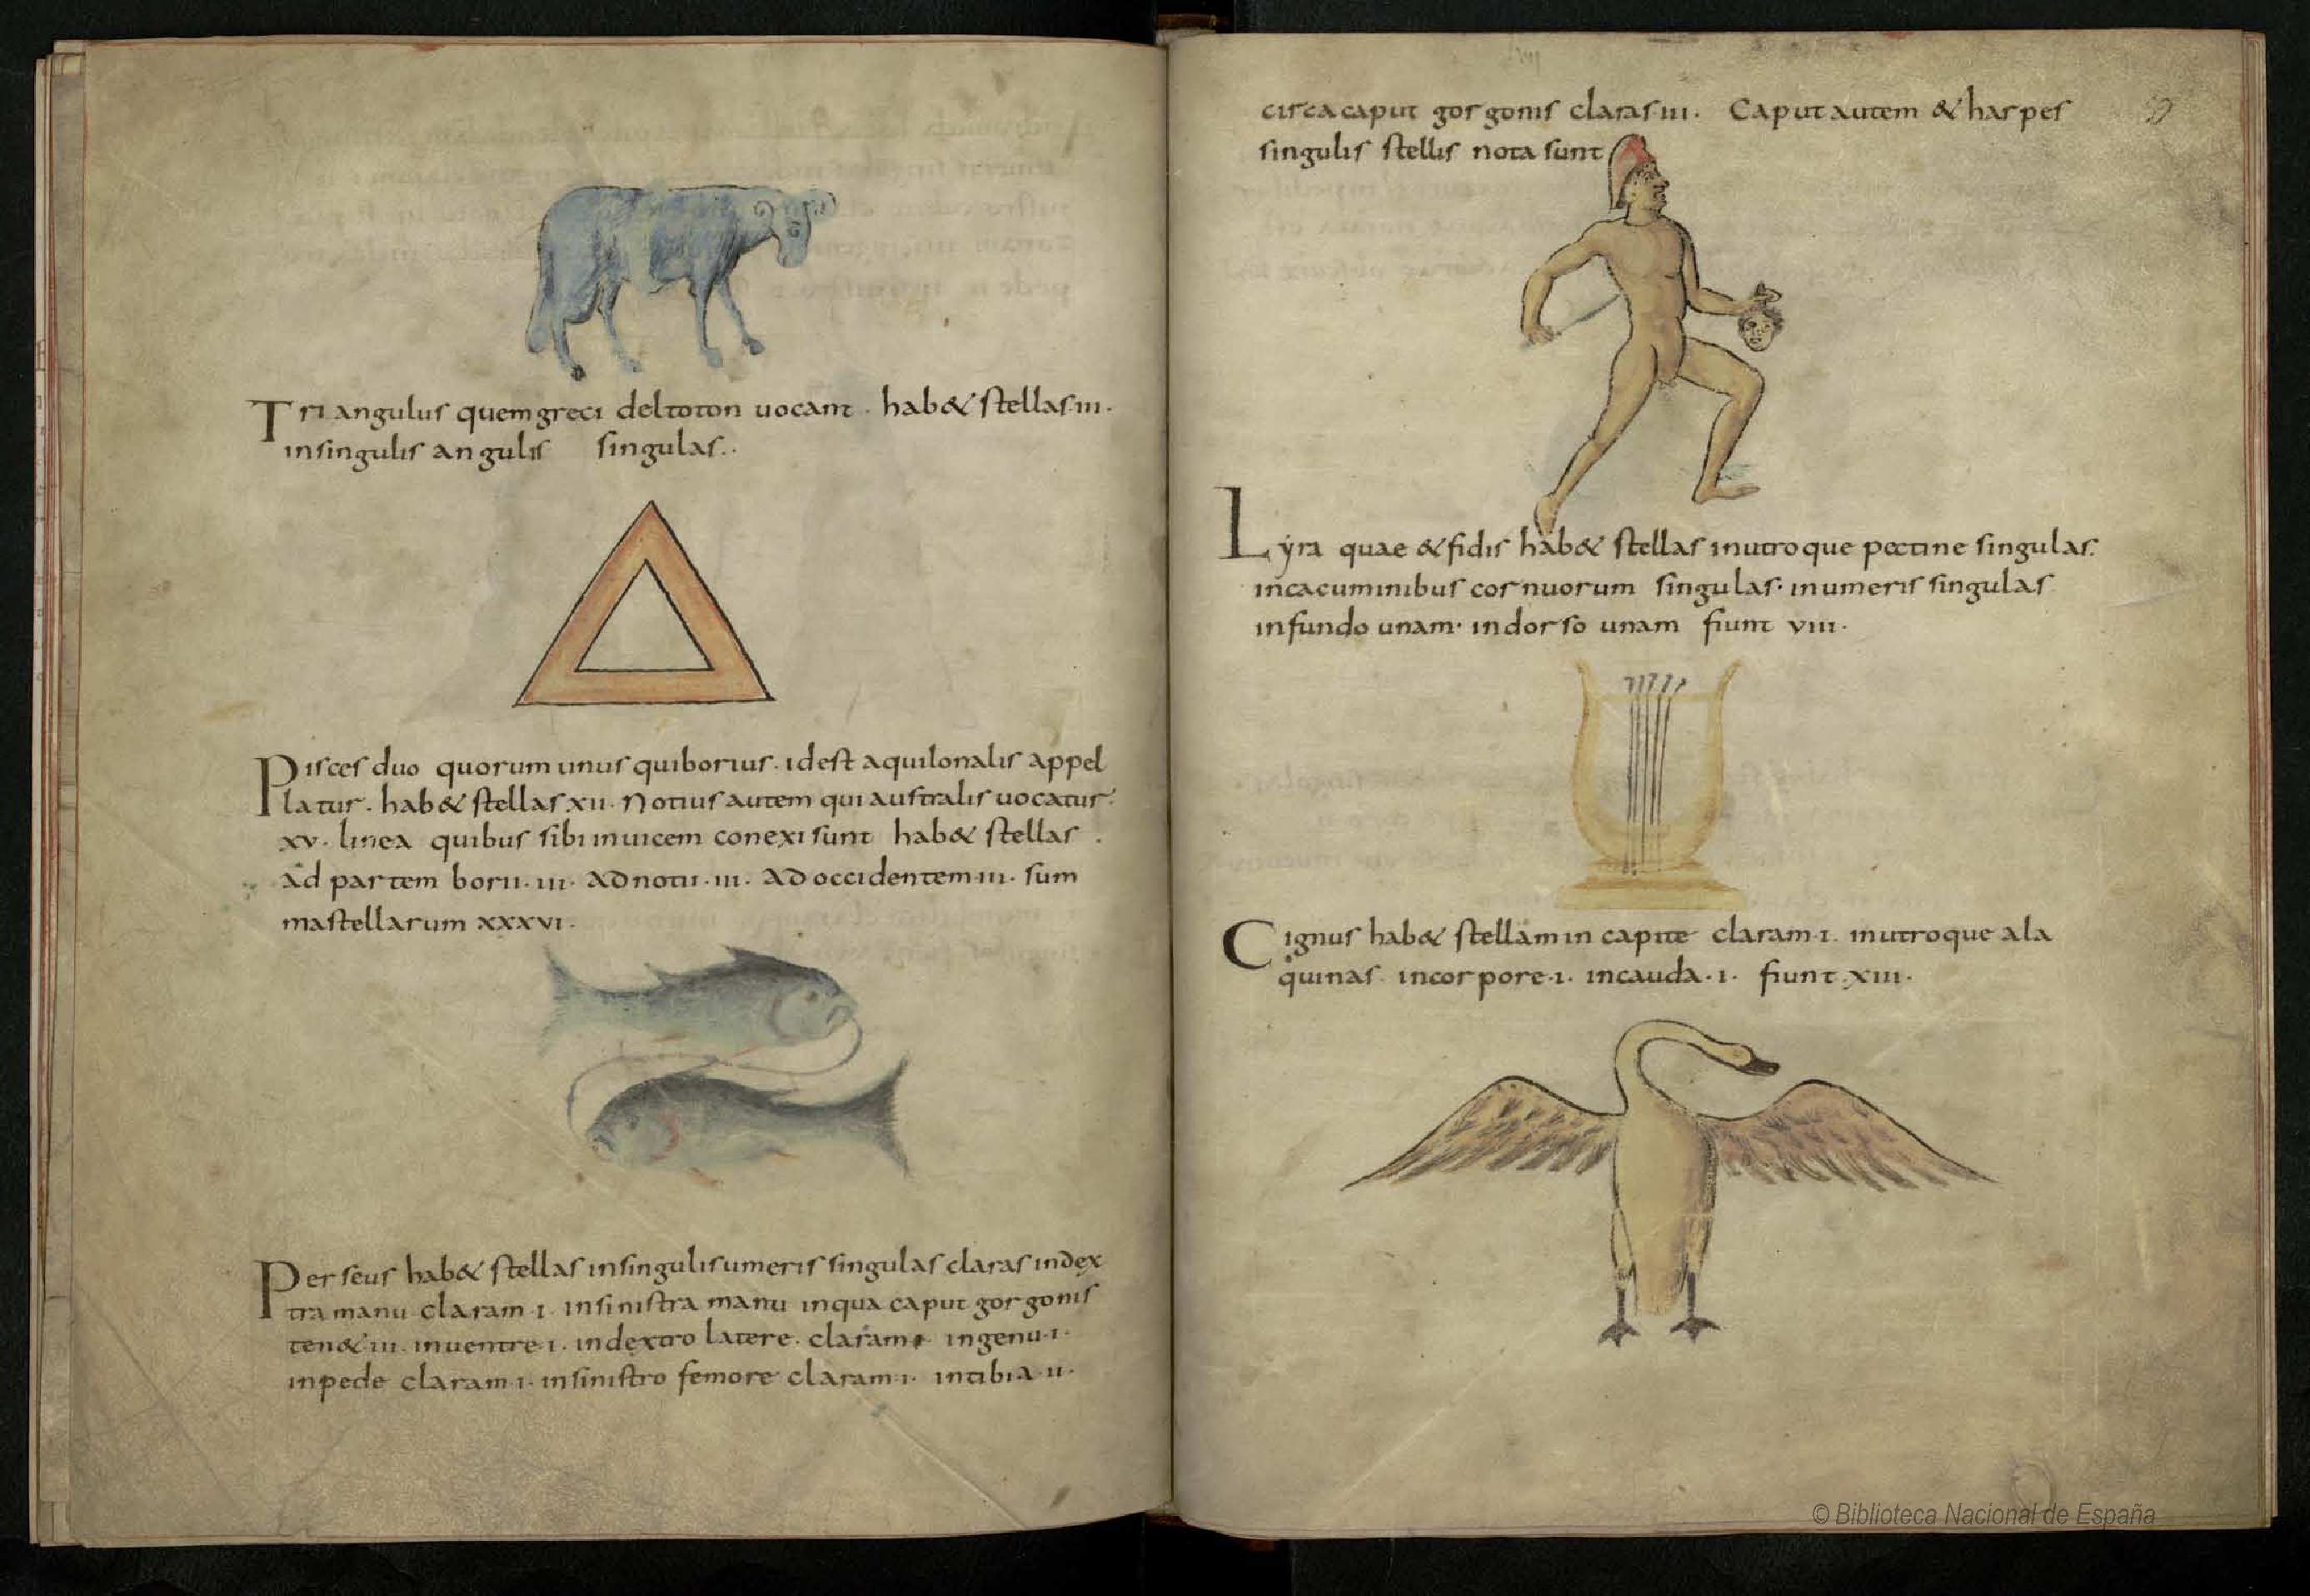 Triangulus quem greci deltoton uocant · hab& stellas·III·
insingulis angulis singulas··
Pisces duo quorum unus qui borius · id est aquilonalis appel
latur · hab& stellas XII · Notius autem qui australis uocatur·
XV· linea quibus sibi inuicem conexi sunt hab& stellas ·
ad partem borii·III· ad notii·III· ad occidentem·III· sum
ma stellarum XXXVI·
Perseus hab& stellas insingulis umeris singulas claras index
tra manu claram·I· insinistra manu inqua caput gorgonis
ten&·III· inuentre·I· indextro latere· claram· ingenu·I·
inpede claram·I· insinistro femore claram·I· intibia·II·
circa caput gorgonis claras·III· Caput autem & harpes
singulis stellis nota sunt
Lyra quae & fidis hab& stellas inutroque pectine singulas·
incacuminibus cornuorum singulas· inumeris singulas
infundo unam· indorso unam fiunt VIII·
Cignus hab& stellam in capite claram·I· inutroque ala
quinas· incorpore·I· incauda·I· fiunt·XIII·
© Biblioteca Nacional de España